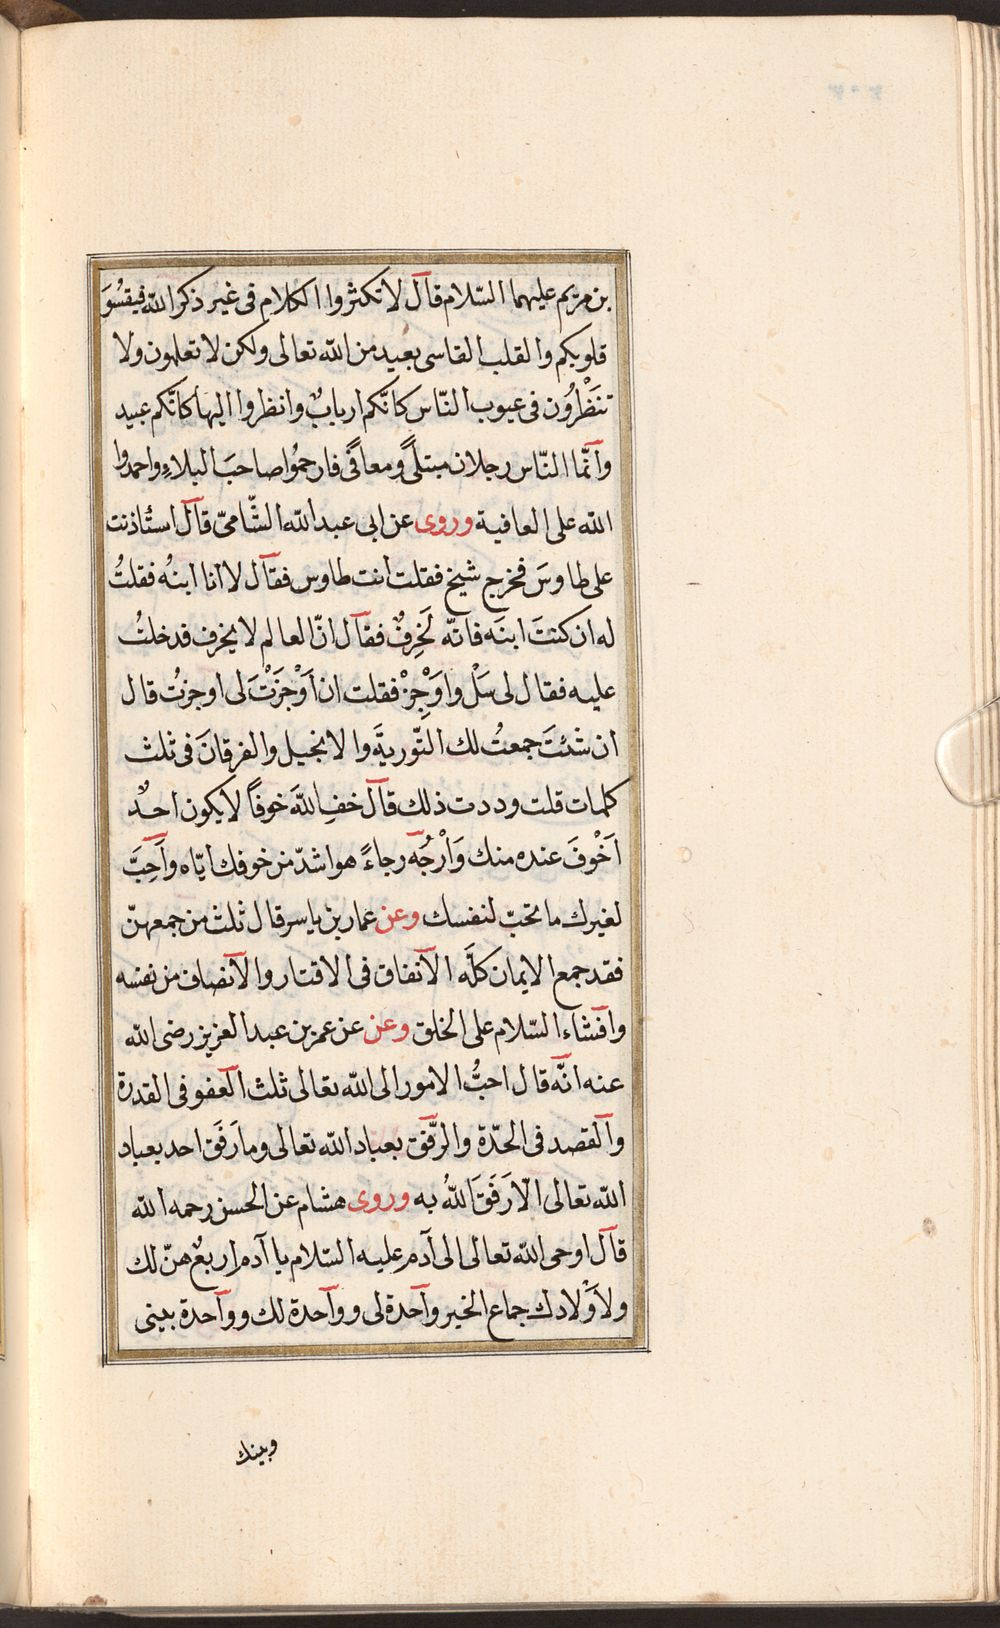 بن مريم عليهما السّلام قال لا تكثروا الكلام فى غير ذكر الله فيقسُوَ
قلوبكم والقلب القاسى بعيد من الله تعالى ولكن لا تعلمون ولا
تنَظْرُون فى عيوب النّاس كانّكم اربابٌ وانظروا اليها كانّكم عبيد
وانّما النّاس رجلان مبتلًى ومعافًى فارحمُوا صاحبَ البلاءِ واحمدوا
الله على العافية وروى عن ابى عبد الله الشّامىّ قال استٔاذنت
على طاوسَ فخرج شيخ فقلت انت طاوس فقال لا انا ابنُه فقلتُ
له ان كنتَ ابنَه فانّه لَخرِفٌ فقال انّ العالم لا يخرف فدخلتُ
عليه فقال لى سَلْ واَوْجِزْ فقلت ان اَوْجَزْتَ لى اوجزتُ قال
ان شئتَ جمعتُ لك التّوريةَ والانجيل والفرقانَ فى ثلث
كلمات قلت وددت ذلك قال خفِ اللهَ خوفاً لا يكون احدٌ
اَخْوفَ عنده منك وَارْجُه رجاءً هو اشدّ من خوفك ايّاه واَحِبَّ
لغيرك ما تحبّ لنفسك وعن عمار بن ياسر قال ثلث من جمعهنّ
فقد جمع الايمان كلَّه الانفاق فى الاقتار والانصاف من نفسه
وافشاء السّلام على الخلق وعن عن عمر بن عبد العزيز رضى الله
عنه انّه قال احبُّ الامور الى الله تعالى ثلث العفو فى القدرة
والقصد فى الحدّة والرّفق بعباد الله تعالى وما رَفَق احد بعباد
الله تعالى الّا رَفَقَ اللهُ به وروى هشام عن الحسن رحمه الله
قال اوحى الله تعالى الى آدم عليه السّلام يا آدم اربعٌ هنّ لك
ولاَوْلادك جماع الخير واحدة لى وواحدة لك وواحدة بينى
وبينك